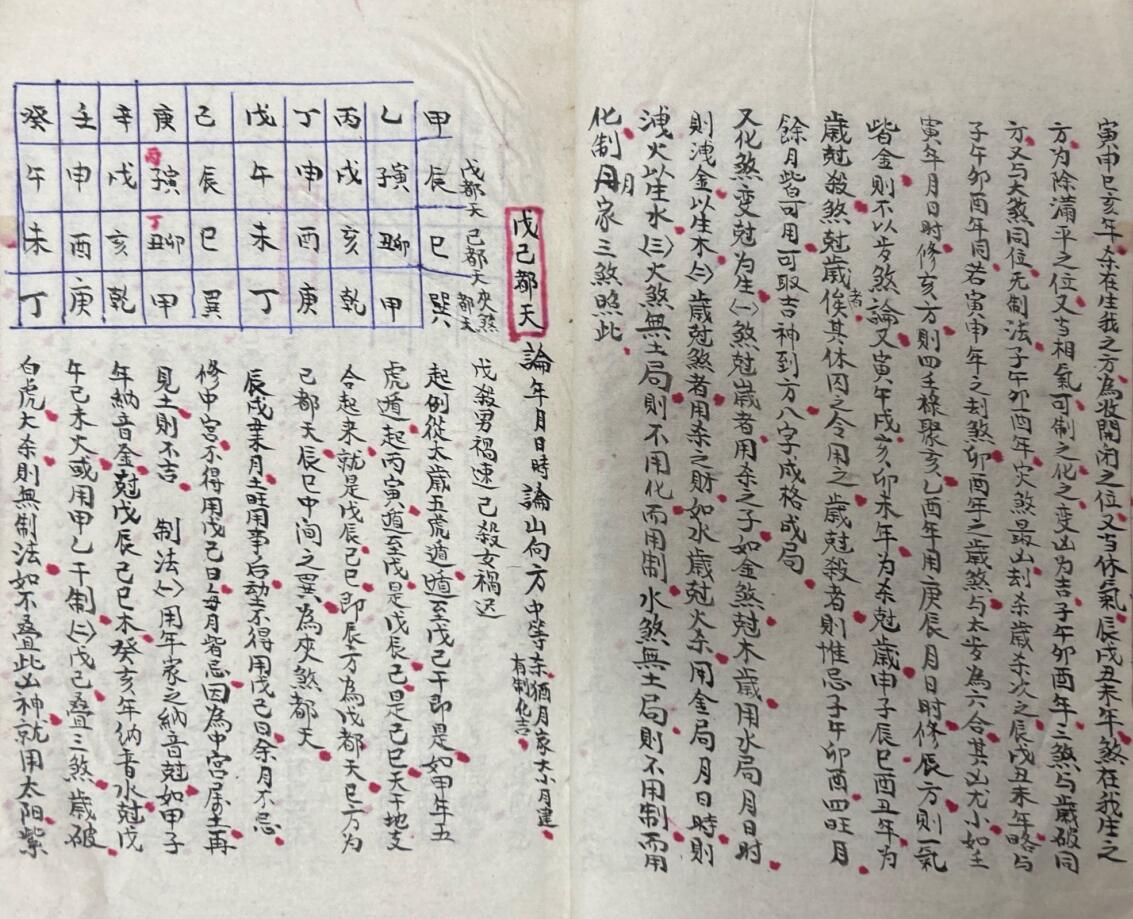 寅申巳亥年。杀在生我之方。為收開闭之位。又当休氣。辰戌丑未年。煞在我生之
方。為除满平之位。又当相氣。可制之化之。变凶为吉。子午卯酉年。三煞与歳破同
方。又与大煞同位。无制法。子午卯酉年。灾煞最凶。刦杀歳杀次之。辰戌丑未年。略与
子午卯酉年同。若寅申年之刦煞。卯酉年之歳煞。与太岁為六合。其凶尤小。如壬
寅年月日时。修亥方。則四壬禄聚亥。乙酉年用庚辰月日时。修辰方。則一氣
皆金。則不以岁煞論。又寅午戌亥卯未年。为杀尅歲。申子辰巳酉丑年。为
歳尅殺。煞尅歳者。俟其休囚之令用之。歳尅殺者。則惟忌子午卯酉四旺月。
餘月皆可用。可取吉神到方。八字成格成局。
又化煞变尅为生。㈠煞尅歲者。用杀之子。如金煞尅木歲。用水局月日时。
則洩金以生木。㈡歲尅煞者。用杀之財。如水歳尅火杀。用金局月日時。則
洩火以生水。㈢火煞無土局。則不用化而用制。水煞無土局。則不用制而用
化。制月家三煞照此。
戊己都天 論年月日時 論山向方中等杀。猶月家大小月建。
有制化吉。
戊都天 己都天 夾煞都天
甲 辰 巳 巽
乙 子寅 丑卯 甲
丙 戌 亥 乾
丁 申 酉 庚
戊 午 未 丁
己 辰 巳 巽
庚 丙 子寅 丁 丑卯 甲
辛 戌 亥 乾
壬 申 酉 庚
癸 午 未 丁
戊殺男禍速 己殺女禍迟
起例從太歲五虎遁。遁至戊己干即是。如甲年五
虎遁起丙寅。遁至戊是戊辰。己是己巳。天干地支
合起来。就是戊辰己巳。即辰方為戊都天。巳方为
己都天。辰巳中间之巽。為夾煞都天。
辰戌丑未月。土旺用事后。动土不得用戊己日。余月不忌。
修中宫。不得用戊己日。每月皆忌。因為中宫属土。再
見土則不吉。 制法㈠用年家之納音尅。如甲子
年納音金。尅戊辰己巳木。癸亥年納音水。尅戊
午己未火。或用甲乙干制。㈡戊己叠三煞。歲破。
白虎。大杀。則無制法。如不叠此凶神。就用太阳。紫